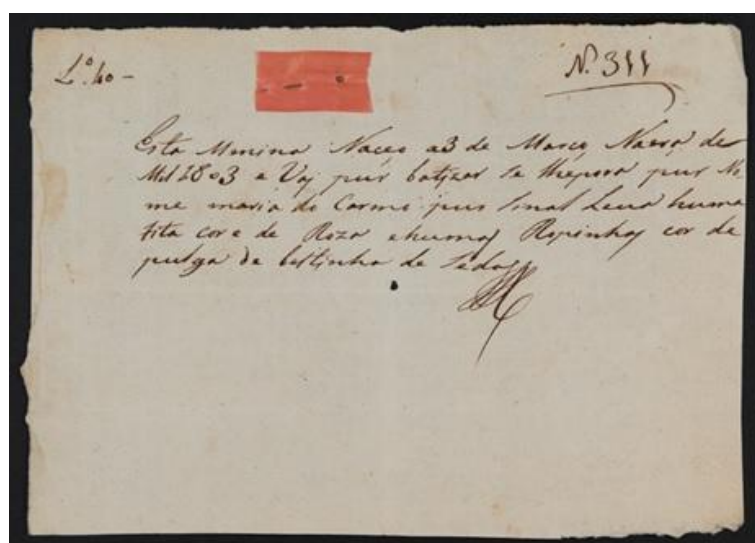 Lº. 40 –
N. 311
Esta Menina Naceo a3 de Março Naera de
Mil 1803 e Vaj pur batizar se lhepora pur No
me maria do Carmo pur sinal Leua huma
fita cor e de Roza ehumas Ropinhas cor de
pulga de de Seda